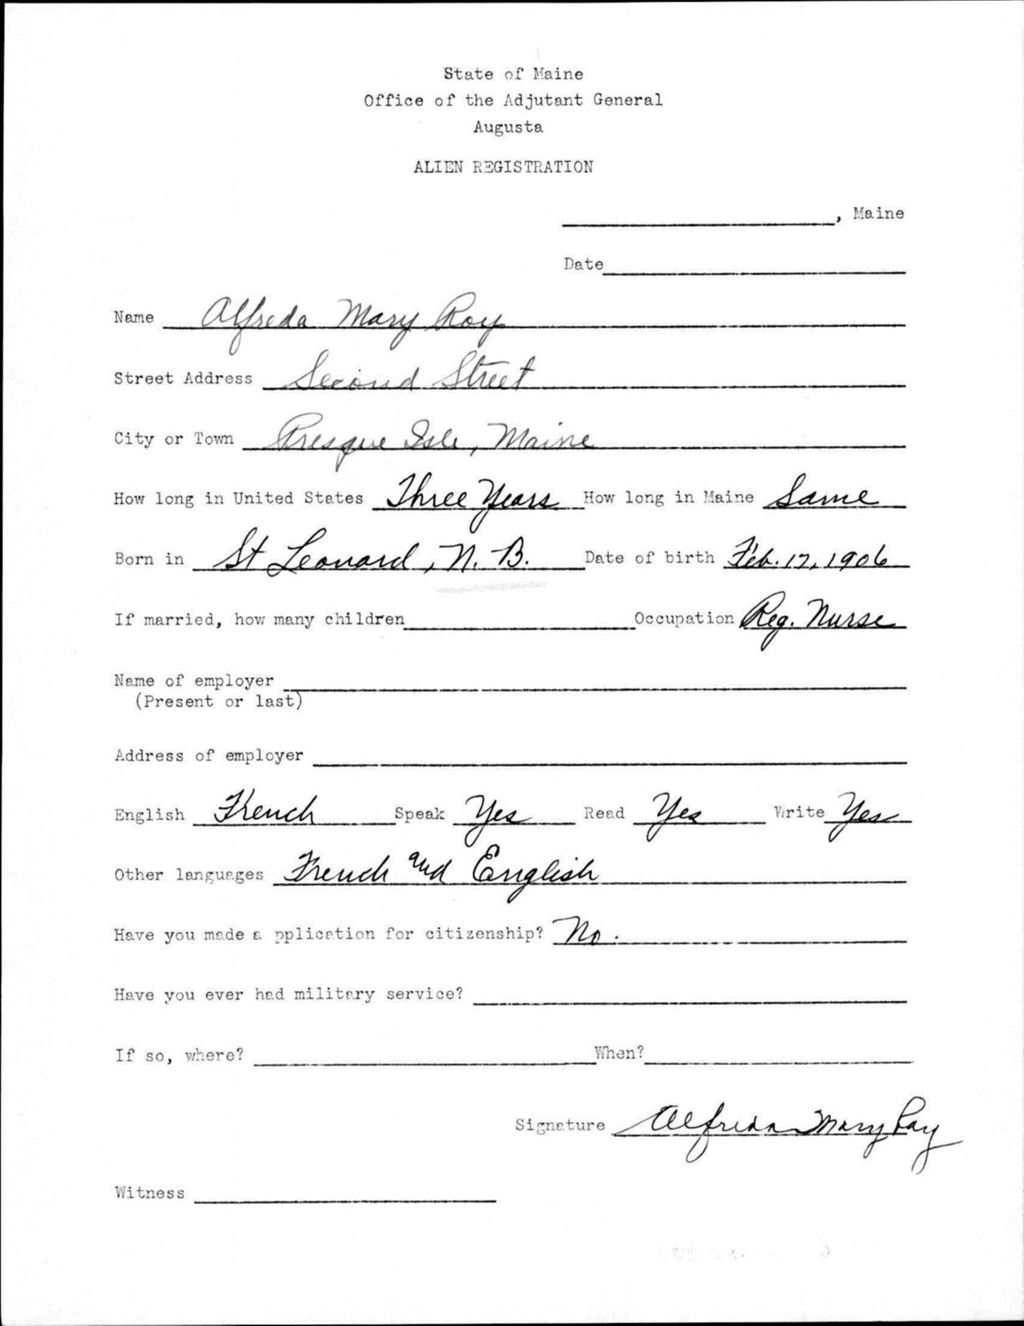 State of Maine
Office of the Adjutant General
Augusta
ALIEN REGISTRATION
, Maine
Date
Name Alfreda Mary Roy
Street Address Second Street
City or Town Presque Isle, Maine
How long in United States Three Years How long in Maine Same
Born in St Leonard, N. B. Date of birth Feb. 17, 1906
If married, how many children Occupation Reg. Nurse
Name of employer
(Present or last)
Address of employer
English French Speak Yes Read Yes Write Yes
Other languages French and English
Have you made a pplication for citizenship? No.
Have you ever had military service?
If so, where? When?
Signature Alfreda Mary Roy
Witness